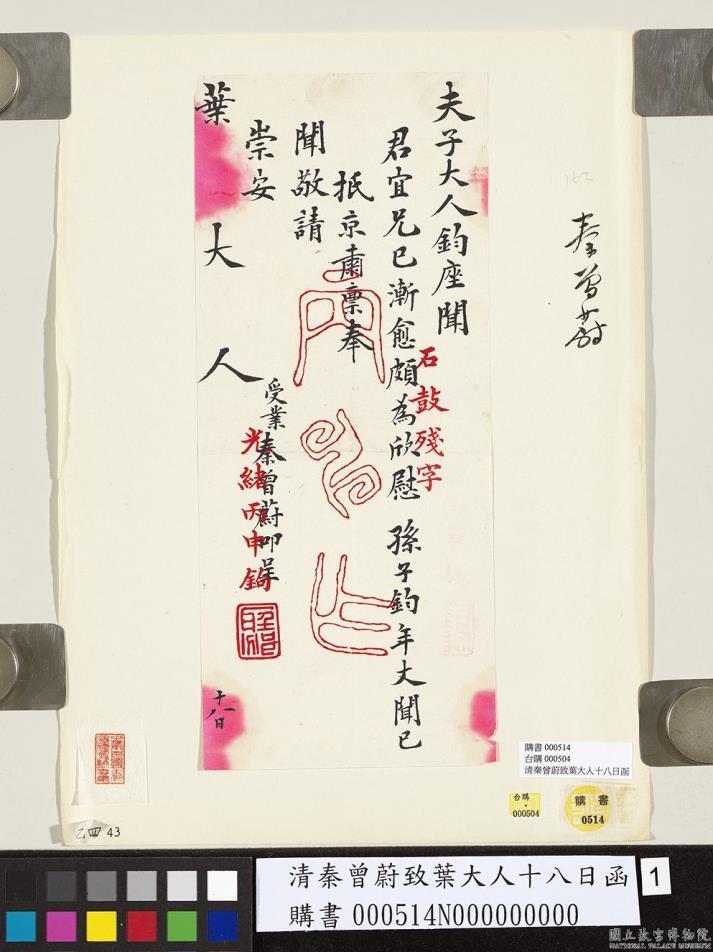 夫子大人鈞座聞
君宜兄已漸愈頗為欣慰 孫子鈞年丈聞已
抵京肅稟奉
聞敬請
崇安
受業秦曾蔚叩呈
葉大人
十八日
石鼓殘字
光緒丙申鉤
162
秦曾蔚
購書 000514
台購 000504
清秦曾蔚致葉大人十八日函
台購
000504
購書
0514
乙四 43
清秦曾蔚致葉大人十八日函
1
購書 000514N000000000
國立故宮博物院
NATIONAL PALACE MUSEUM